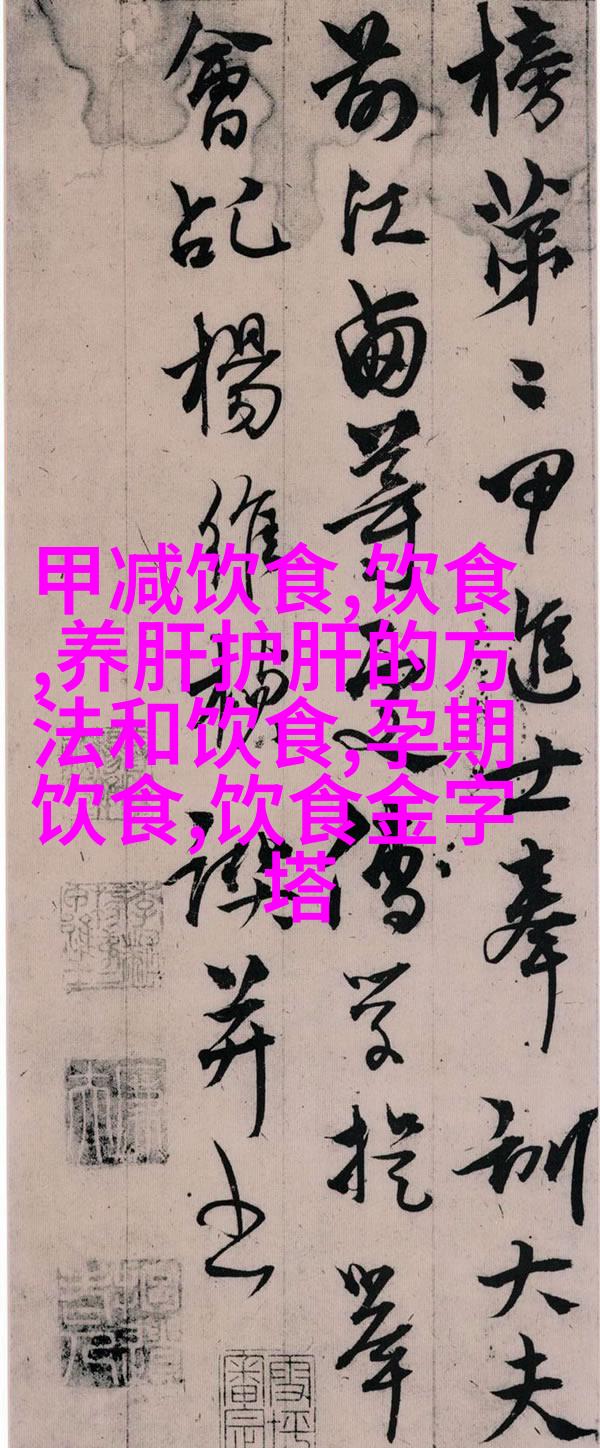 榜第二甲進士奉訓大夫
前江西等處儒學提舉
會稽楊維禎譔并書
甲减饮食,饮食
,养肝护肝的方
法和饮食,孕期
饮食,饮食金字
塔